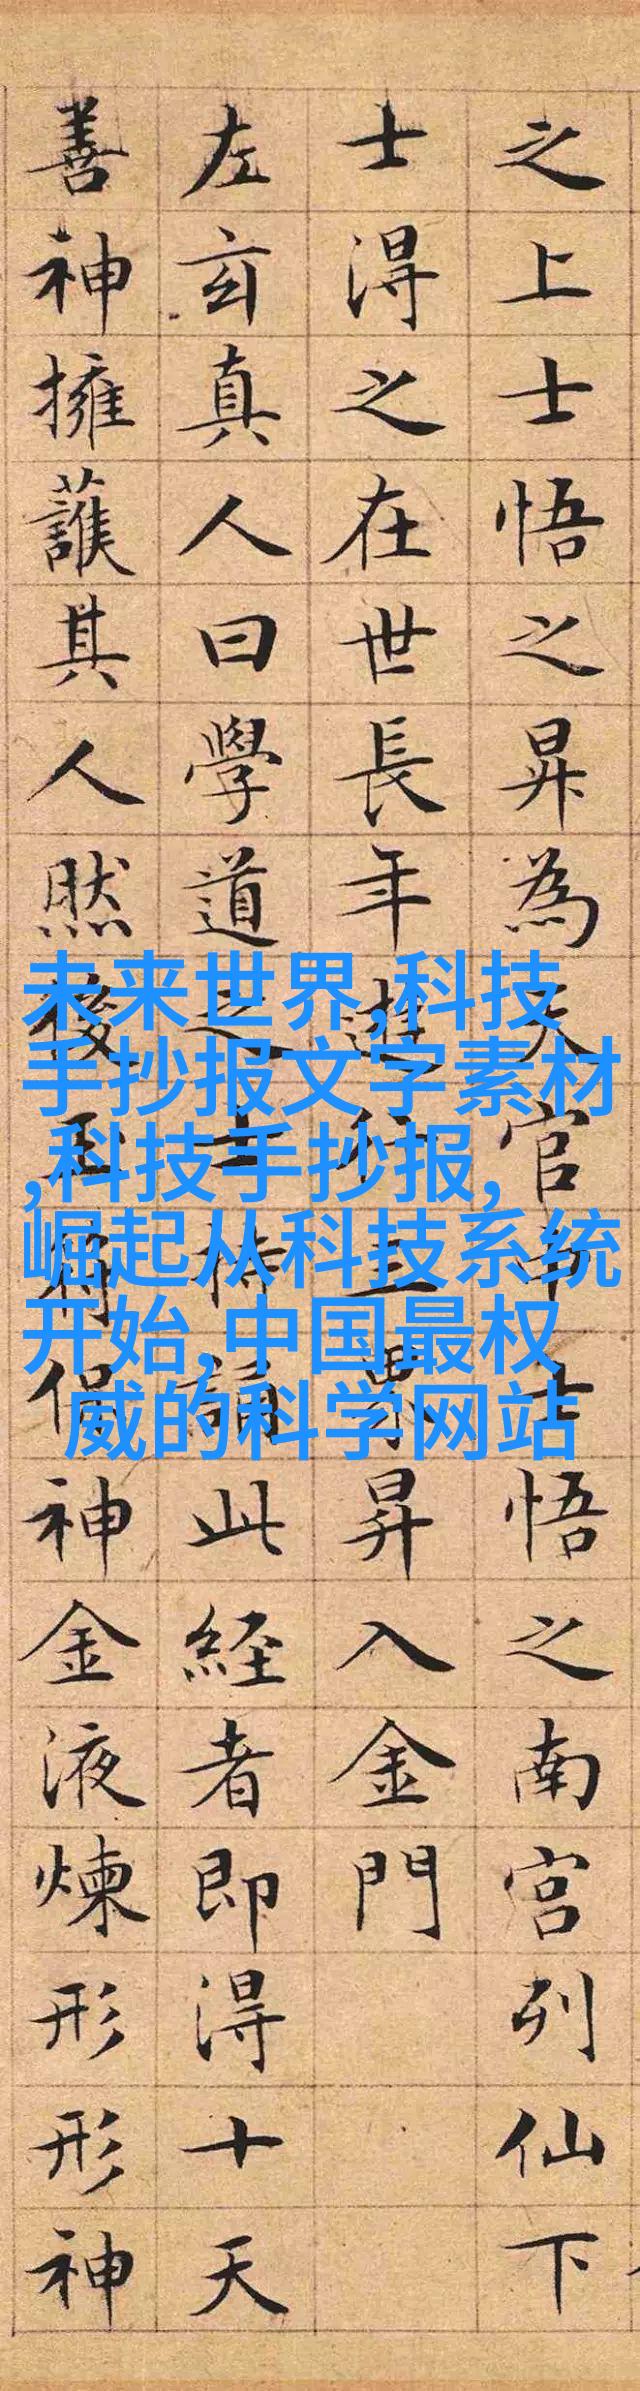 之上士悟之昇為天官中士悟之南宮列仙下
士得之在世長年遊行三界昇入金門
左玄真人曰學道之士持誦此經者即得十天
善神擁護其人然後玉符保神金液煉形形神
未来世界,科技
手抄报文字素材
,科技手抄报,
崛起从科技系统
开始,中国最权
威的科学网站